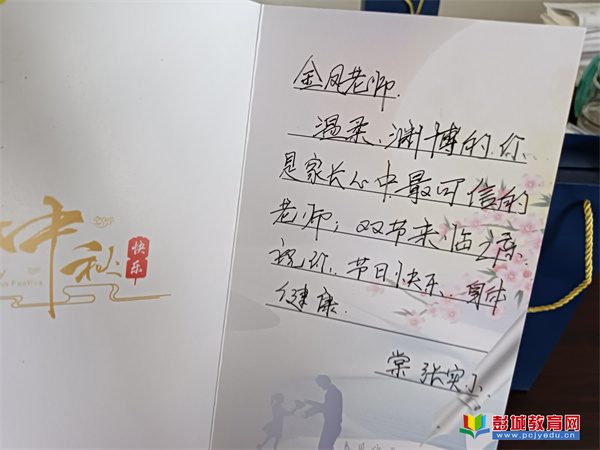 金凤老师.
温柔、渊博的你
是家长心中最可信的
老师；双节来临之际
祝你、节日快乐、身体
健康.
棠张实小
中秋
快乐
彭城教育网
www.pcjyedu.cn